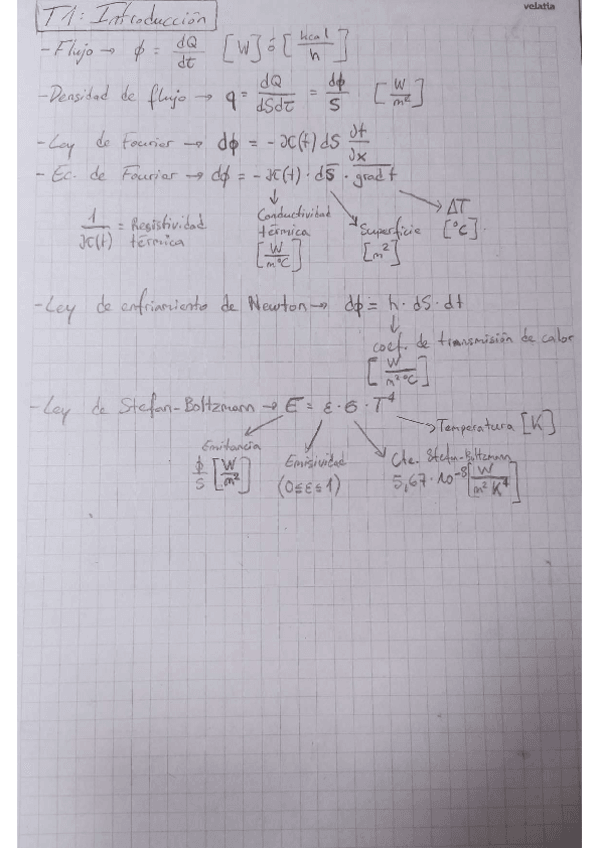 velatia
T1: Introducción
- Flujo → ϕ = dQ/dτ [W] ó [kcal/h]
- Densidad de flujo → q = dQ/dSdτ = dϕ/S [W/m²]
- Ley de Fourier → dϕ = -ϰ(t) dS ∂t/∂x
- Ec. de Fourier → dϕ = -ϰ(t) · dS̄ · grad t
1/ϰ(t) = Resistividad térmica
Conductividad térmica [W/m°C]
Superficie [m²]
ΔT [°C]
- Ley de enfriamiento de Newton → dϕ = h · dS · dt
coef. de transmisión de calor
[W/m²°C]
- Ley de Stefan-Boltzmann → E = ε · σ · T⁴
Emitancia ϕ/S [W/m²]
Emisividad (0≤ε≤1)
Cte. Stefan-Boltzmann 5,67·10⁻⁸ [W/m² K⁴]
Temperatura [K]